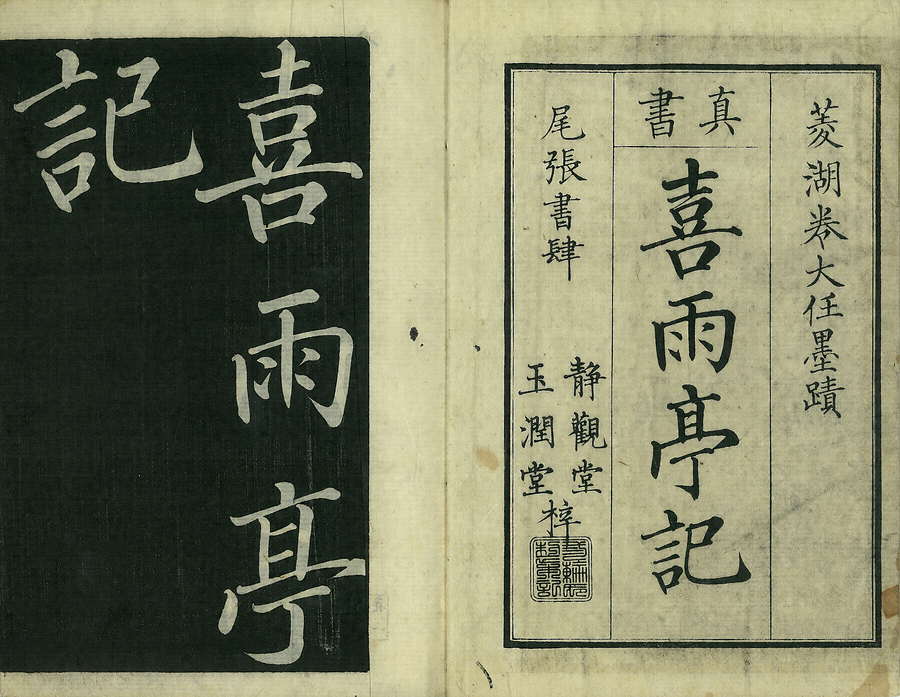 菱湖卷大任墨蹟
真書
喜雨亭記
尾張書肆
靜觀堂
玉潤堂
梓
喜雨亭
記